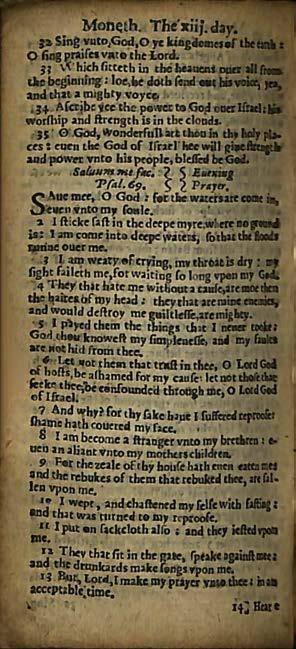 Moneth. The xiij. day.
32 Sing vnto God, O ye kingdomes of the earth:
O sing praises vnto the Lord.
33 Which sitteth in the heauens ouer all from
the beginning: loe, he doth send out his voice, yea,
and that a mighty voyce.
34 Ascribe yee the power to God ouer Israel: his
worship and strength is in the clouds.
35 O God, wonderfull art thou in thy holy pla-
ces: euen the God of Israel hee will giue strength
and power vnto his people, blessed be God.
Saluum me fac. Euening
Psal. 69. Prayer.
Saue mee, O God: for the waters are come in,
euen vnto my soule.
2 I sticke fast in the deepe myre, where no ground
is: I am come into deepe waters, so that the floods
runne ouer me.
3 I am weary of crying, my throat is dry: my
sight faileth me, for waiting so long vpon my God.
4 They that hate me without a cause, are moe then
the haires of my head: they that are mine enemies,
and would destroy me guiltlesse, are mighty.
5 I payed them the things that I neuer tooke:
God thou knowest my simplenesse, and my faults
are not hid from thee.
6 Let not them that trust in thee, O Lord God
of hosts, be ashamed for my cause: let not those that
seeke thee, be confounded through me, O Lord God
of Israel.
7 And why? for thy sake haue I suffered reproofe:
shame hath couered my face.
8 I am become a stranger vnto my brethren: e-
uen an aliant vnto my mothers children.
9 For the zeale of thy house hath euen eaten me:
and the rebukes of them that rebuked thee, are fal-
len vpon me.
10 I wept, and chastened my selfe with fasting:
and that was turned to my reproofe.
11 I put on sackcloth also: and they iested vpon
me.
12 They that sit in the gate, speake against me:
and the drunkards make songs vpon me.
13 But, Lord, I make my prayer vnto thee: in an
acceptable time.
14 Heare